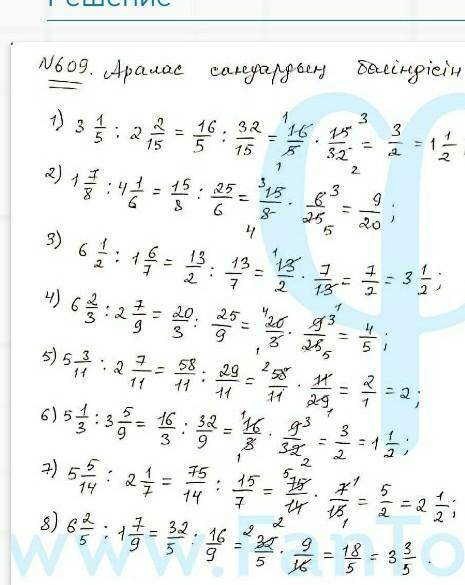 Решение
№609. Аралас сандардың бөліндісін
1) 3 1/5 : 2 2/15 = 16/5 : 32/15 = 16/5 · 15/32 = 3/2 = 1 1/2
2) 1 7/8 : 4 1/6 = 15/8 : 25/6 = 15/8 · 6/25 = 9/20 ;
3) 6 1/2 : 1 6/7 = 13/2 : 13/7 = 13/2 · 7/13 = 7/2 = 3 1/2 ;
4) 6 2/3 : 2 7/9 = 20/3 : 25/9 = 20/3 · 9/25 = 4/5 ;
5) 5 3/11 : 2 7/11 = 58/11 : 29/11 = 58/11 · 11/29 = 2/1 = 2 ;
6) 5 1/3 : 3 5/9 = 16/3 : 32/9 = 16/3 · 9/32 = 3/2 = 1 1/2 ;
7) 5 5/14 : 2 1/7 = 75/14 : 15/7 = 75/14 · 7/15 = 5/2 = 2 1/2 ;
8) 6 2/5 : 1 7/9 = 32/5 : 16/9 = 32/5 · 9/16 = 18/5 = 3 3/5 .
www.FanTo